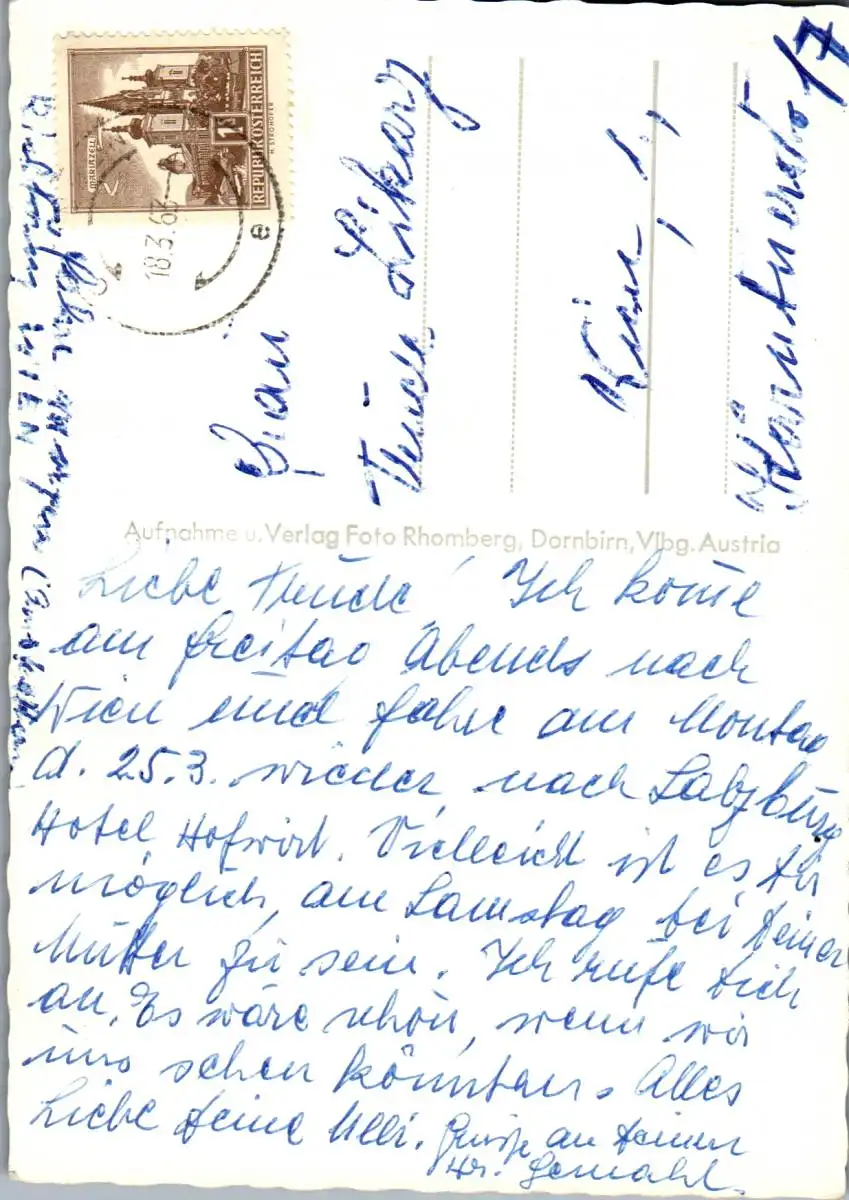 MARIAZELL
1S
REPUBLIK ÖSTERREICH
H. STROHOFER
18.3.63
e
Frau
Trude Likarz
Wien 1,
Kärntnerstr. 17
Aufnahme u. Verlag Foto Rhomberg, Dornbirn, Vlbg. Austria
Liebe Trude! Ich kome
am Freitag Abends nach
Wien und fahre am Montag
d. 25.3. wieder nach Salzburg
Hotel Hofwirt. Vielleicht ist es Dir
möglich, am Samstag bei Deiner
Mutter zu sein. Ich rufe Dich
an. Es wäre schön, wenn wir
uns sehen könnten. Alles
Liebe Deine Melli. Grüße an Deinen
Hr. Gemahl.
WIEN